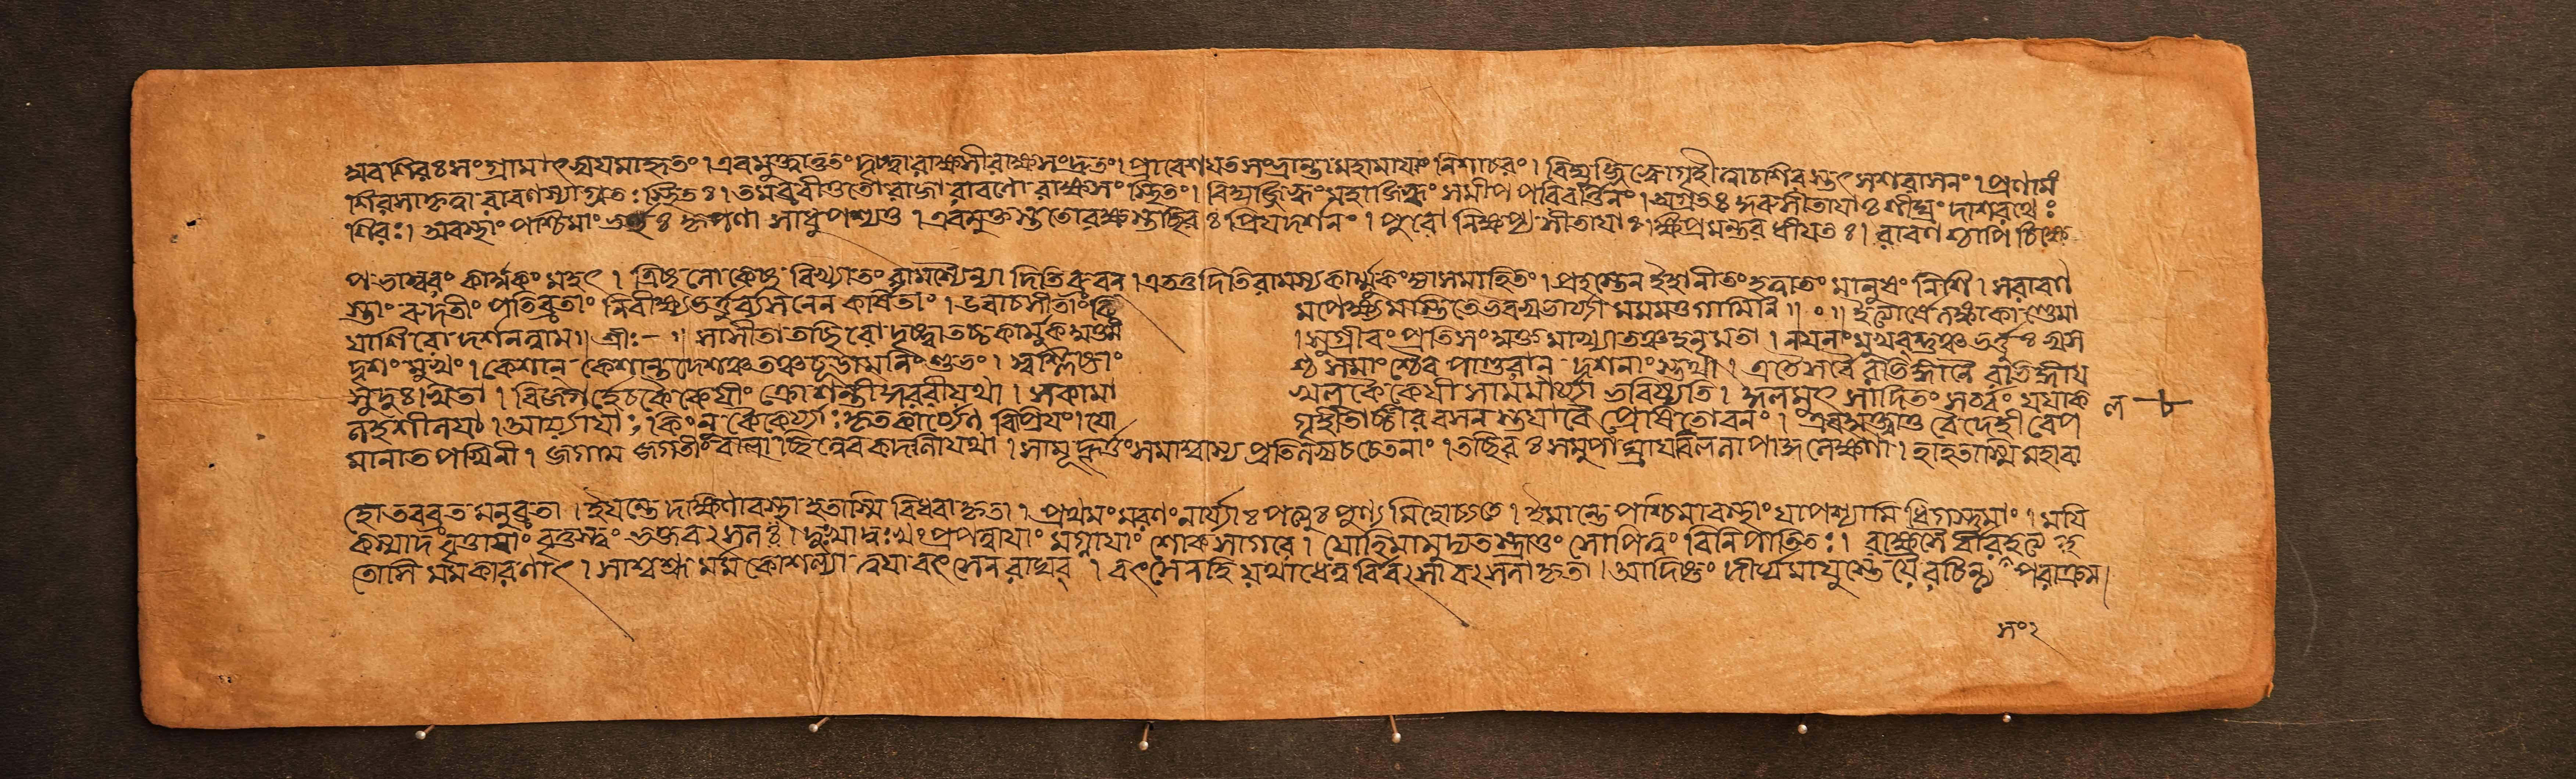 ঘবশিরঃ সংগ্রামাৎ স্বয়মাহৃতং । এবমুক্ত্বাততং দৃষ্ট্বা রাক্ষসীরাক্ষসং দ্রুতং । প্রাবেশযত সংভ্রান্তা মহামাযাং নিশাচরং । বিদ্যুজ্জিহ্বোগৃহীত্বাচ শিরস্তৎ সশরাসনং । প্রণামং
শিরসাকৃত্বা রাবণস্যাগ্রতঃ স্থিতঃ । তমব্রবীত্ততো রাজা রাবণো রাক্ষসং স্থিতং । বিদ্যুজ্জিহ্বং মহাজিহ্বং সমীপ পরিবর্ত্তিনং । অগ্রতঃ কুরু সীতাযাঃ শীঘ্রং দাশরথেঃ
শিরঃ । অবস্থাং পশ্চিমাং ভর্ত্তুঃ কৃপণা সাধুপশ্যতু । এবমুক্তস্তুতোরক্ষস্তচ্ছিরঃ প্রিযদর্শনং । পুরো নিক্ষপ্য সীতাযাঃ ক্ষিপ্রমন্তর ধীযতঃ । রাবণ শ্চাপি চিক্ষে
প ভাস্বরং কার্ম্মকং মহৎ । ত্রিষু লোকেষু বিখ্যাতং রামস্যৈন্যা দিতি ব্রুবন । এতত্তদিতি রামস্য কার্ম্মুকং জ্যাসমাহিতং । প্রহস্তেন ইহানীতং হত্বাতং মানুষং নিশি । সরাবণ
স্তাং রুদতীং পতিব্রতাং নিবীক্ষ্য ভর্ত্তুর্ব্যসনেন কর্ষিতাং । উবাচ সীতাং কি মপেক্ষ্য মাস্তিতে ভবস্ব ভার্য্যা মমমণ্ডগামিনি ॥ ০ ॥ ইত্যার্ষে লঙ্কাকাণ্ডেমা
যাশিরো দর্শনন্নাম ॥ শ্রীঃ— ॥ সা সীতা তচ্ছিরো দৃষ্ট্বা তচ্চ কার্ম্মুক মুত্তমং । সুগ্রীবং প্রতিসং সক্ত মাখ্যাতঞ্চ হনূমতা । নযনাং মুখবর্ণঞ্চ ভর্ত্তুঃ স্বস
দৃশং মুখং । কেশান কেশান্ত দেশঞ্চ তঞ্চ চূডামনিং শুভং । শ্চ সমাং শ্চৈব পাণ্ডুরান দশনাং স্তথা । এতৈঃ সর্বৈ রভিজ্ঞানৈ রভিজ্ঞায
সুদুঃখিতা । বিজগর্হেচ কৈকেযীং ক্রোশন্তী কুররীযথা । সকামা খলু কৈকেযী সা মমার্য্যা ভবিষ্যতি । কুলমুৎ সাদিতং সর্ব্বং যযাক ল
লহশীলয়া । আর্য্যাযাঃ কিং নু কৈকেয্যাঃ কৃতং কার্য্যেণ বিপ্রিযং । যো গৃহীতাশ্চীরবসন স্তযাবৈ প্রোষিতোবনং । এবমুক্ত্বাতু বৈদেহী বেপ
মানাত পস্বিনী । জগাম জগতীং বালা চ্ছিন্নেব কদলীযথা । সামূহূর্ত্তং সমাশ্বাস্য প্রতিলভ্যচ চেতনাং । তচ্ছিরঃ সমুপাঘ্রায বিললাপাকুলেক্ষণা । হাহতাস্মি মহাবা
হো তবব্রত মনুব্রতা । ইযন্তে দক্ষিণাবস্থা হতাস্মি বিধবাকৃতা । প্রথমং মরণং নার্য্যাঃ পত্যুঃ পুণ্য মিহোচ্যতে । ইমান্তে পশ্চিমাবস্থাং যাপশ্যামি ধিগস্তুমাং । ময়ি
শোকসাগরে । যোহিমামুদ্যতস্ত্রাতুং সোপিত্বং বিনিপাতিতঃ । রাক্ষসৈ
তোসি মমকারণাৎ । সাশ্বশ্রূ র্মম কোশল্যা ত্বযা বৎসেন রাঘব । বৎসেনহি যথাধেনু র্বিবৎসা বৎসলাকৃতা । আদিষ্টং দীর্ঘমাযুস্তে যৈ রচিন্ত্য পরাক্রম ।
সং২